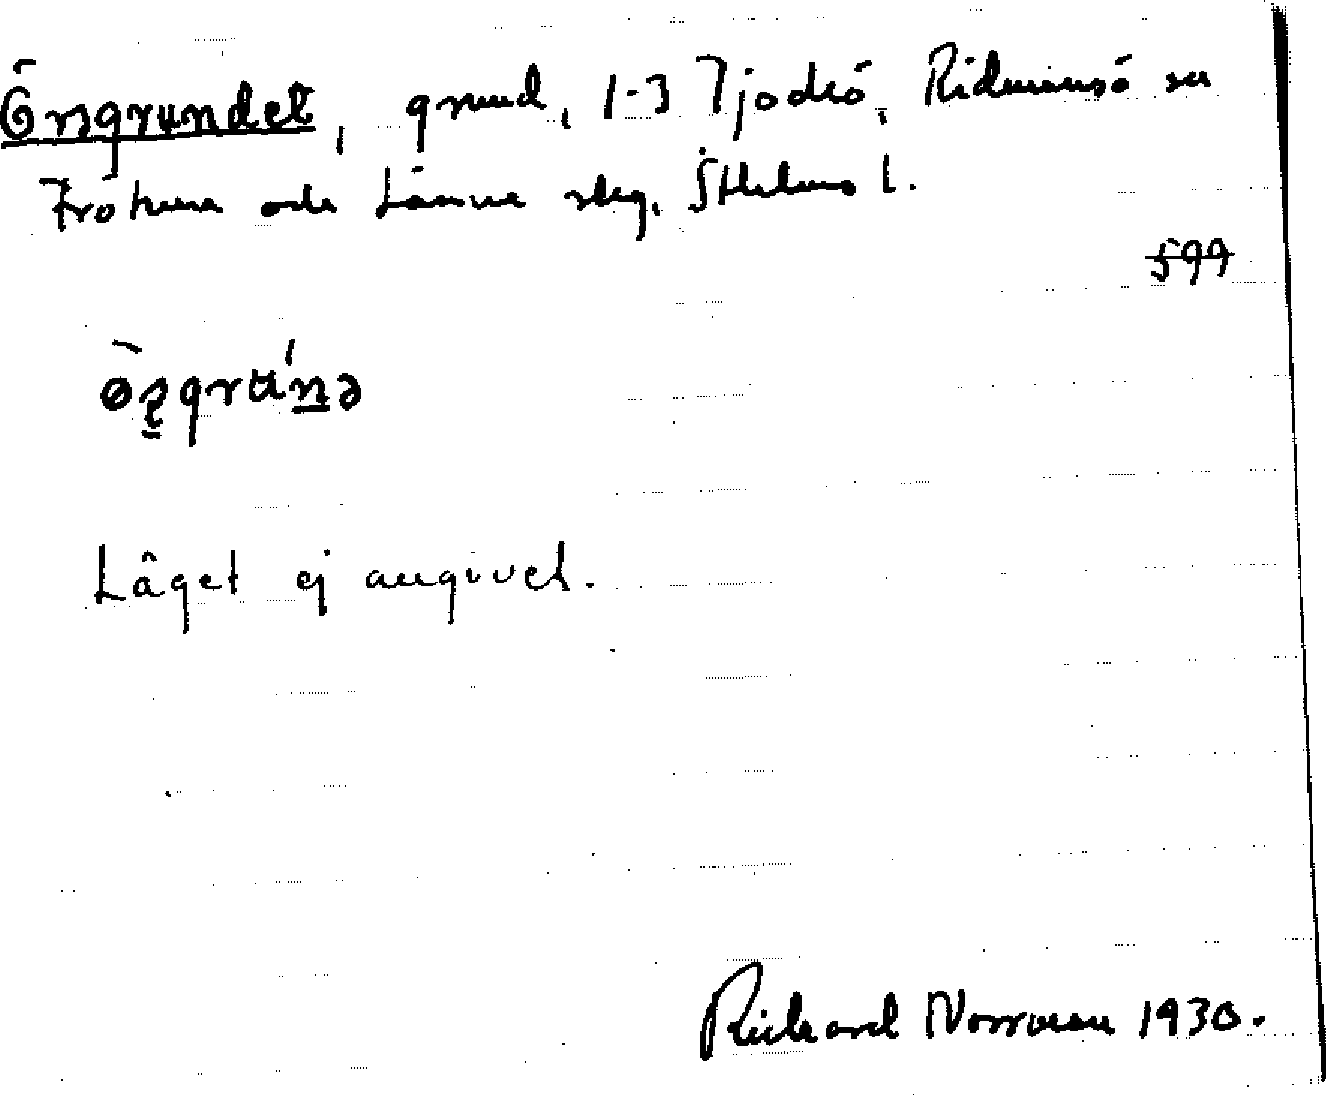 Örngrundet, grund, 1-3 Tjockö, Ridmansö sn
Frötuna och Länna skg, Sthlms l.
599
Läget ej angivet.
Richard Norrman 1930.